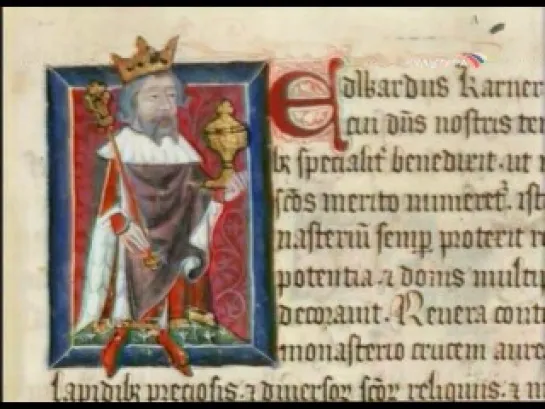 КУЛЬТУРА
Edwardus Karner
cui dn̄s nostris te
bꝫ specialit̄ benedixit. ut
sc̄os merito numeret̄. ist
nasteriū semp protexit r
potentia. ⁊ donis multip
decorauit. Reuera cont
monasterio crucem aure
lapidibꝫ preciosis. ⁊ diuersoꝝ sc̄oꝝ reliquiis. ⁊ m